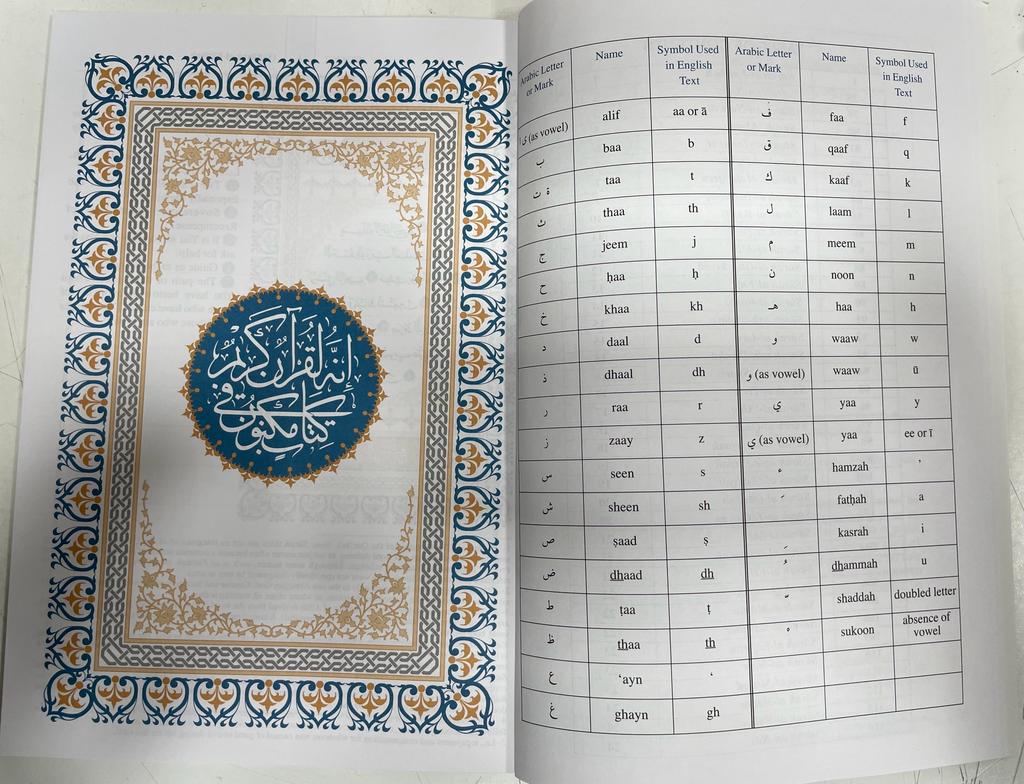 إِنَّهُ لَقُرْآنٌ كَرِيمٌ
فِي كِتَابٍ مَكْنُونٍ
Arabic Letter or Mark Name Symbol Used in English Text Arabic Letter or Mark Name Symbol Used in English Text
ى ا (as vowel) alif aa or ā ف faa f
ب baa b ق qaaf q
ة ت taa t ك kaaf k
ث thaa th ل laam l
ج jeem j م meem m
ح ḥaa ḥ ن noon n
خ khaa kh هـ haa h
د daal d و waaw w
ذ dhaal dh و (as vowel) waaw ū
ر raa r ي yaa y
ز zaay z ي (as vowel) yaa ee or ī
س seen s ء hamzah ʼ
ش sheen sh َ fatḥah a
ص ṣaad ṣ ِ kasrah i
ض dhaad dh ُ dhammah u
ط ṭaa ṭ ّ shaddah doubled letter
ظ thaa th ْ sukoon absence of vowel
ع ‘ayn ‘
غ ghayn gh